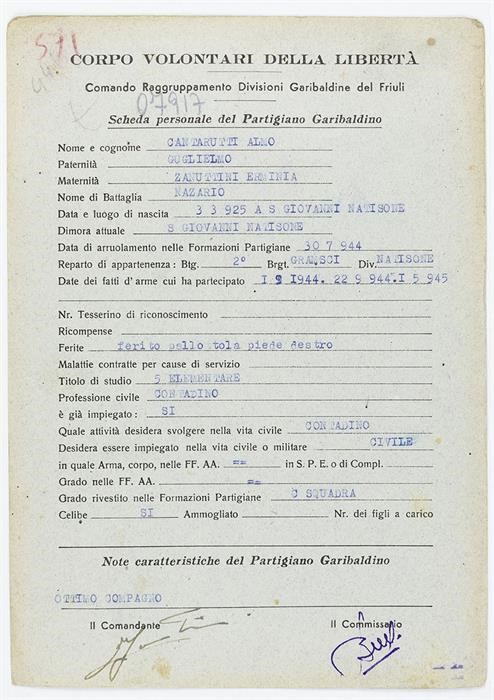 571
CORPO VOLONTARI DELLA LIBERTÀ
Comando Raggruppamento Divisioni Garibaldine del Friuli
07917
Scheda personale del Partigiano Garibaldino
Nome e cognome CANTARUTTI ALMO
Paternità GUGLIELMO
Maternità ZANUTTINI ERMINIA
Nome di Battaglia NAZARIO
Data e luogo di nascita 3 3 925 A S GIOVANNI NATISONE
Dimora attuale S GIOVANNI NATISONE
Data di arruolamento nelle Formazioni Partigiane 30 7 944
Reparto di appartenenza: Btg. 2° Brgt. GRAMSCI Div. NATISONE
Date dei fatti d'arme cui ha partecipato I 9 I944. 22 9 944. I 5 945
Nr. Tesserino di riconoscimento
Ricompense
Ferite ferito pallottola piede destro
Malattie contratte per cause di servizio
Titolo di studio 5 ELEMENTARE
Professione civile CONTADINO
è già impiegato: SI
Quale attività desidera svolgere nella vita civile CONTADINO
Desidera essere impiegato nella vita civile o militare CIVILE
in quale Arma, corpo, nelle FF. AA. == in S. P. E. o di Compl.
Grado nelle FF. AA. ==
Grado rivestito nelle Formazioni Partigiane C SQUADRA
Celibe SI Ammogliato Nr. dei figli a carico
Note caratteristiche del Partigiano Garibaldino
OTTIMO COMPAGNO
Il Comandante Il Commissario